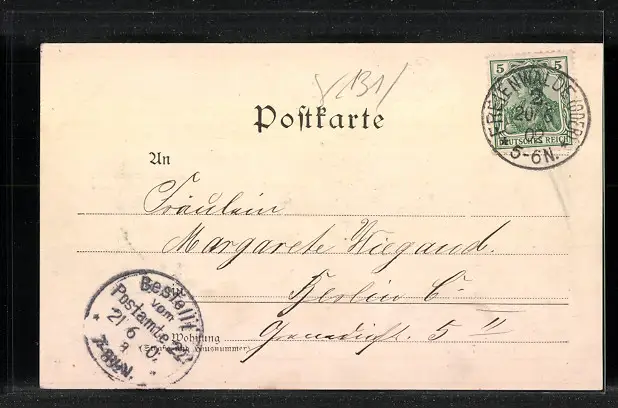 (131)
5 5
DEUTSCHES REICH
FREIENWALDE (ODER)
20.6
02
5-6N.
Postkarte
An
Fräulein
Margarete Wiegand.
in
Berlin C.
5 II
Wohnung
(Straße und Hausnummer)
Bestellt
vom
Postamte
21 6 0